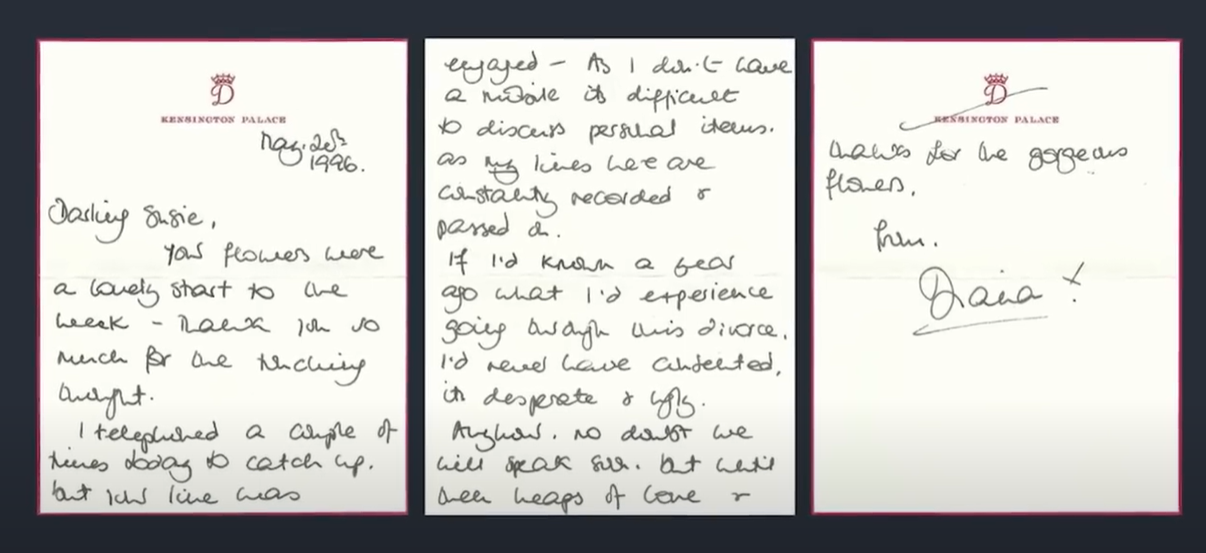 D
KENSINGTON PALACE
May. 20th
1996.
Darling Susie,
Your flowers were
a lovely start to the
week - Thank you so
much for the touching
thought.
I telephoned a couple of
times today to catch up.
but your line was
engaged - As I don't have
a mobile its difficult
to discuss personal items.
as my lines here are
constantly recorded &
passed on.
If I'd known a year
ago what I'd experience
going through this divorce.
I'd never have consented,
its desperate & ugly.
Anyhow. no doubt we
will speak soon. but until
then heaps of love &
D
KENSINGTON PALACE
thanks for the gorgeous
flowers.
from.
Diana x